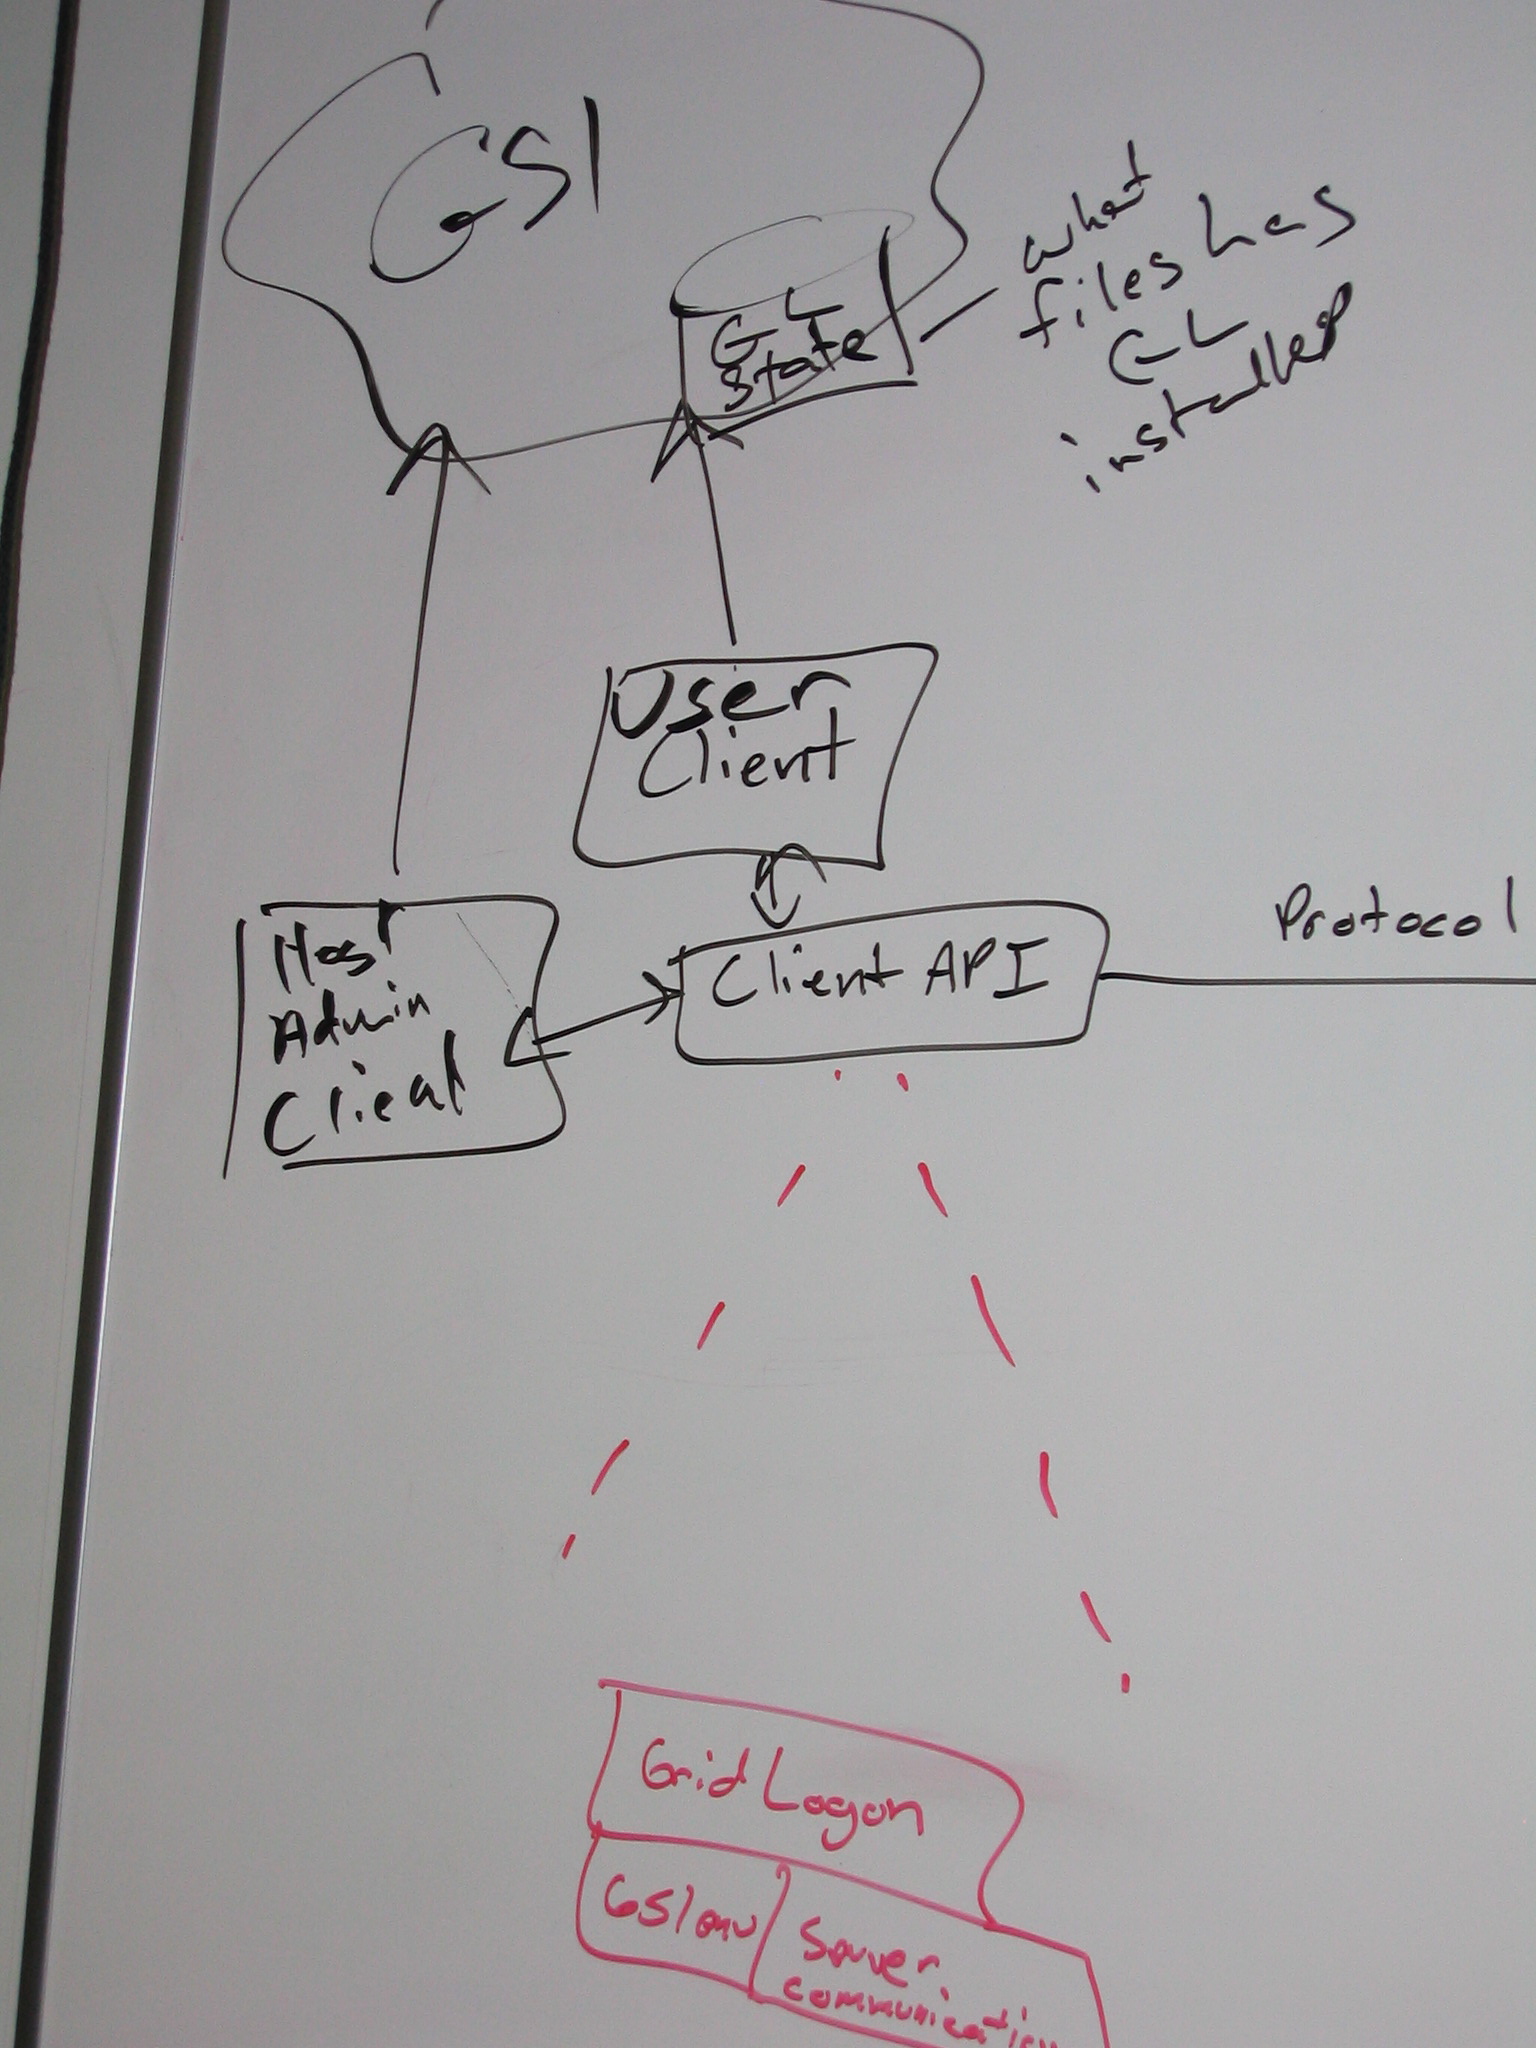 GSI
GL
State
what
files has
GL
installed
User
Client
Host
Admin
Client
Client API
Protocol
Grid Logon
GSI env
Server
communication